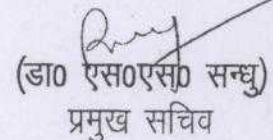 (डा0 एस0एस0 सन्धु)
प्रमुख सचिव